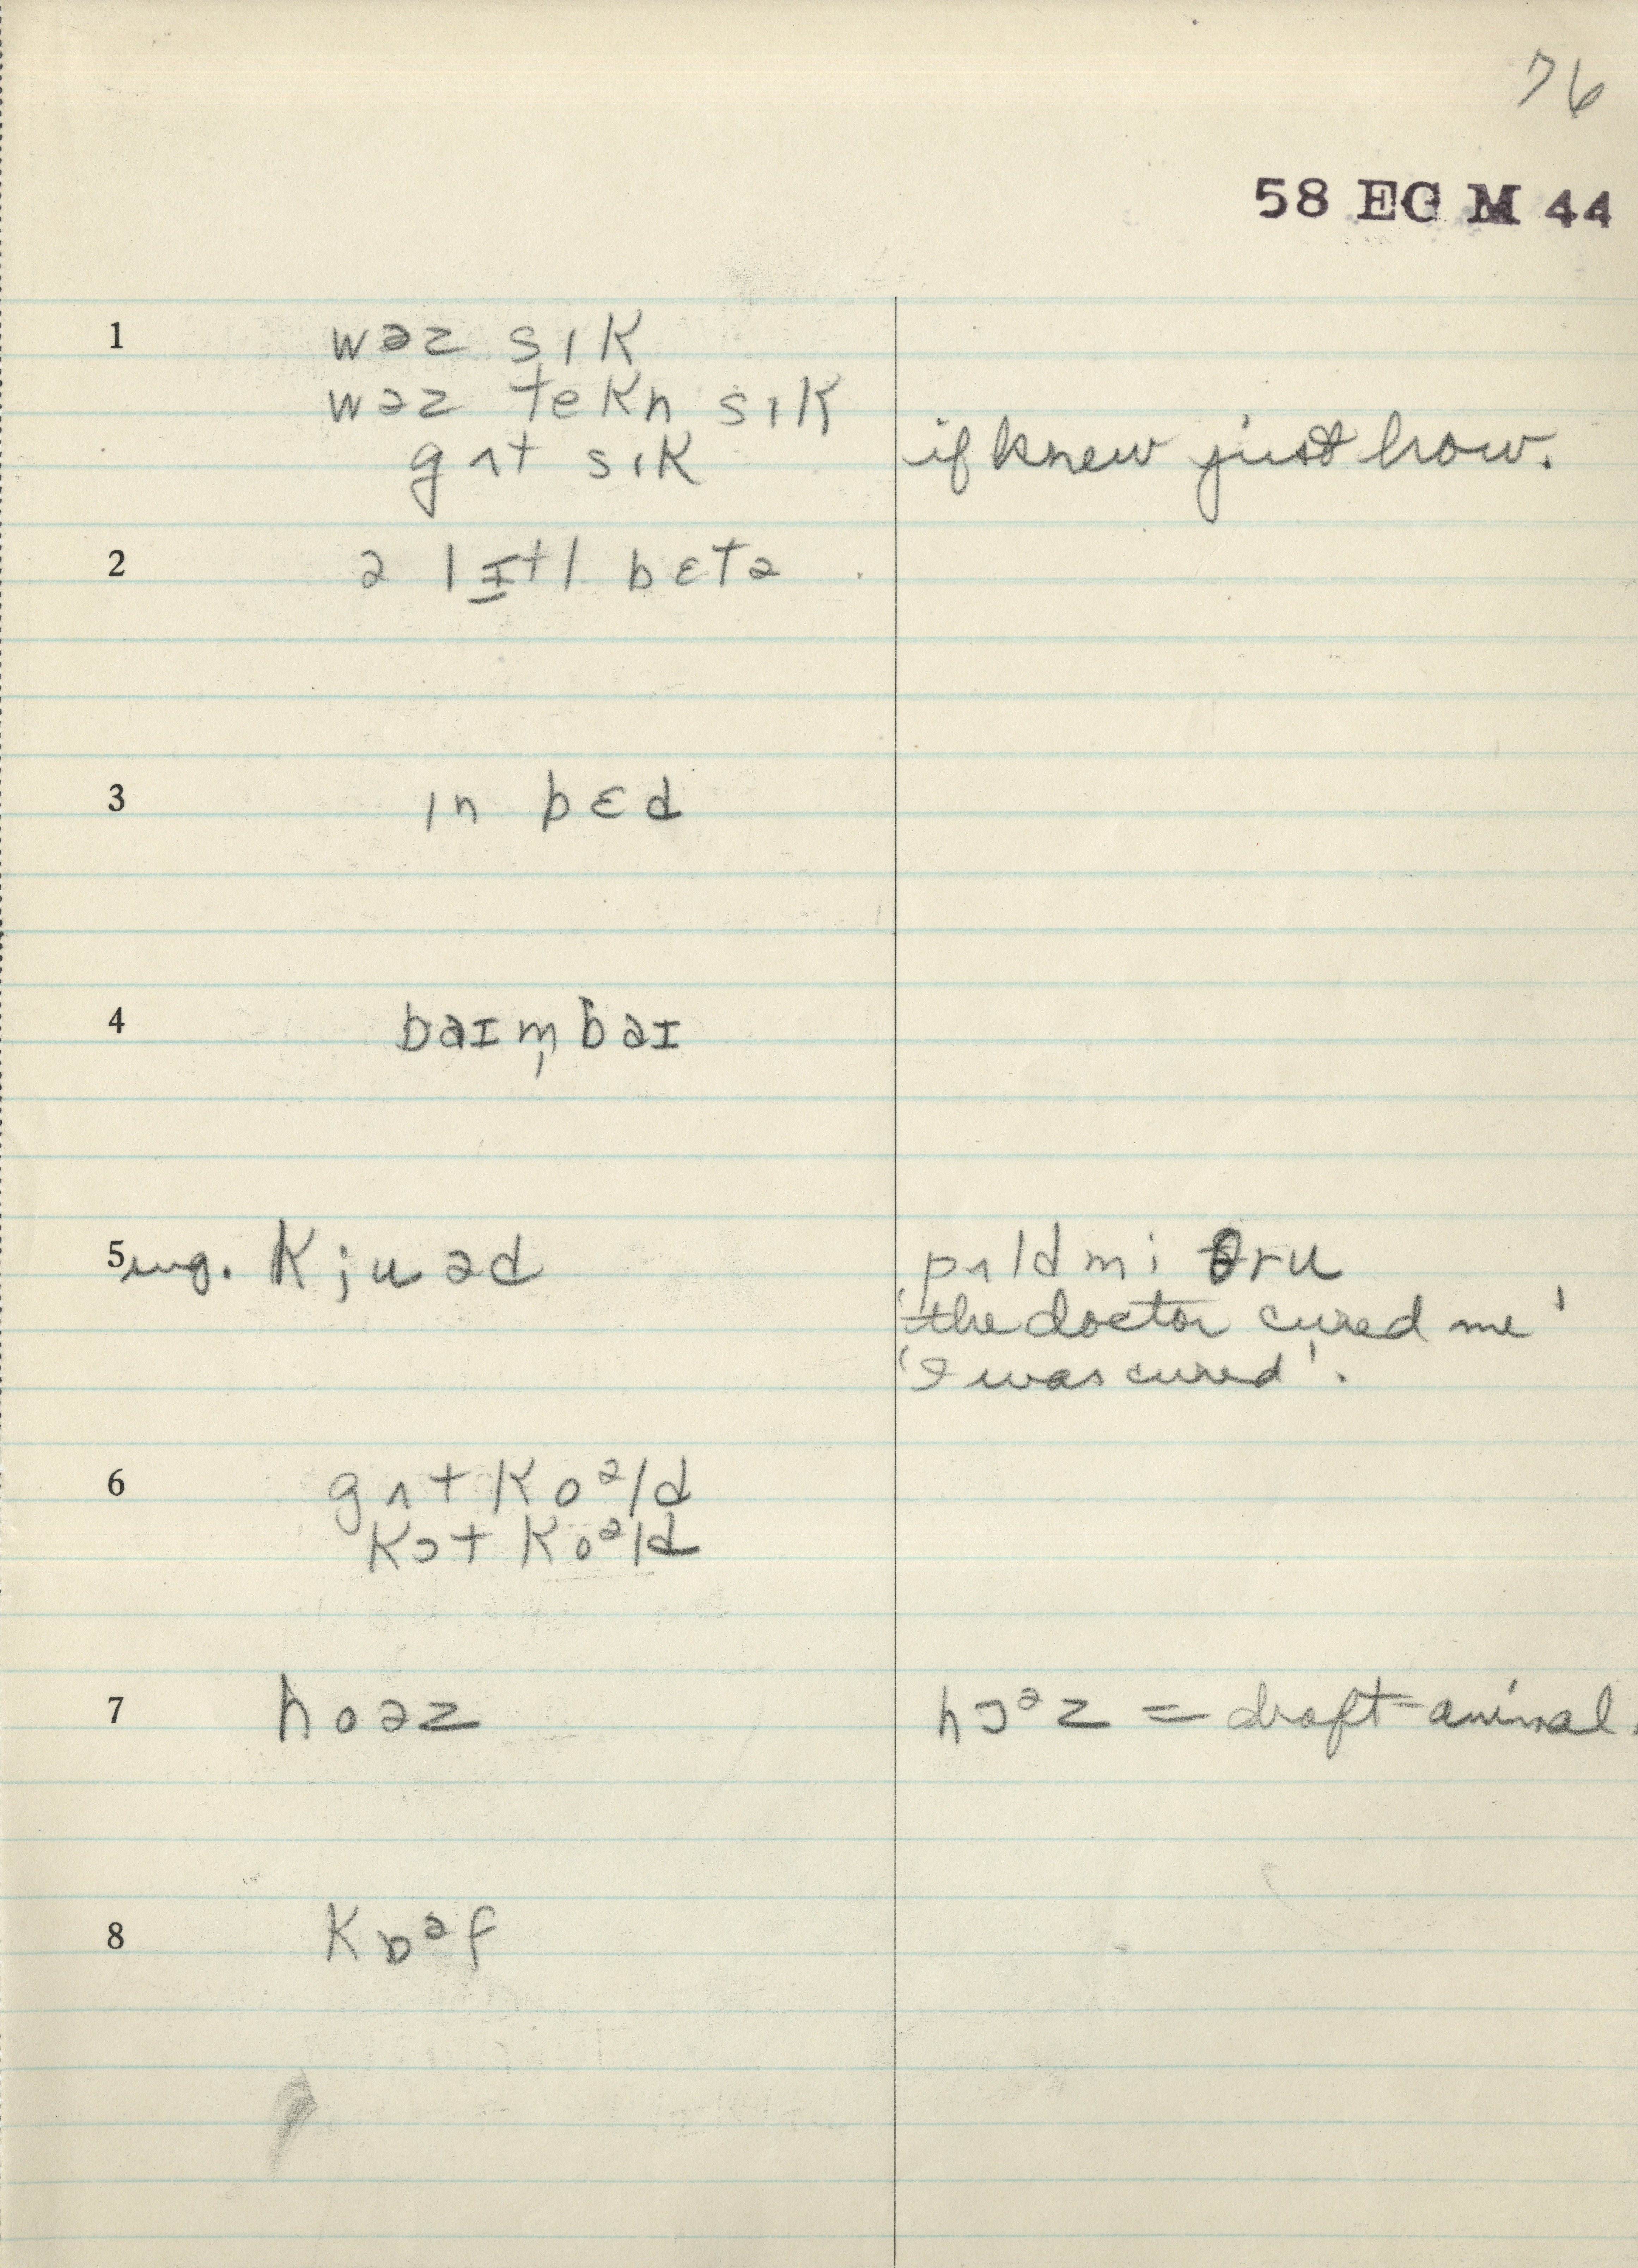 76
58 EG M 44
1 wəz sɪk
wəz tekn sɪk
gʌt sɪk if knew just how.
2 ə lɪtl betə
3 ɪn bɛd
4 baɪm̩baɪ
5 sug. kjuəd pʌld mi θru
'the doctor cured me'
'I was cured'.
6 gʌt koᵊld
kɔt koᵊld
7 hoəz hɔᵊz = draft-animal.
8 kɒᵊf